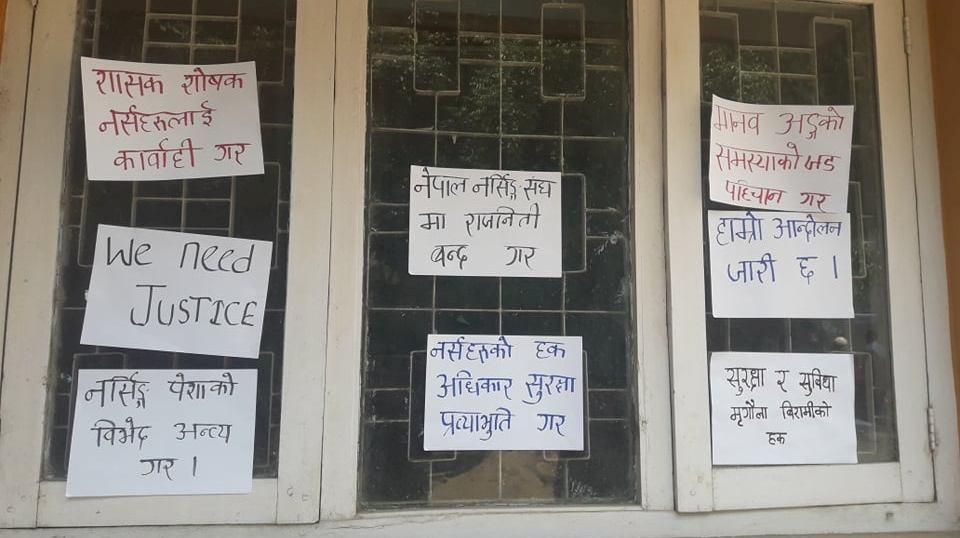 शासक शोषक
नर्सहरुलाई
कार्वाही गर
We need
JUSTICE
नर्सिङ्ग पेशाको
विभेद अन्त्य
गर ।
नेपाल नर्सिङ्ग संघ
मा राजनिती
बन्द गर
नर्सहरुको हक
अधिकार सुरक्षा
प्रत्याभुति गर
मानव अङ्गको
समस्याको जड
पहिचान गर
हाम्रो आन्दोलन
जारी छ ।
सुरक्षा र सुविधा
मृगौना बिरामीको
हक